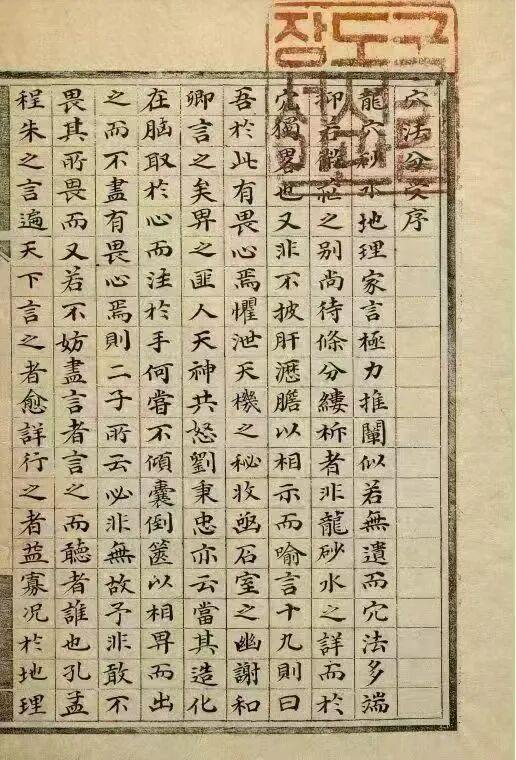 장도국
穴法分序
龍穴砂水地理家言極力推闡似若無遺而穴法多端
抑若之别尚待條分縷析者非龍砂水之詳而於
穴獨畧也又非不披肝瀝膽以相示而喻言十九則曰
吾於此有畏心焉懼泄天機之秘收亟石室之幽謝和
卿言之矣畀之匪人天神共怒劉秉忠亦云當其造化
在腦取於心而注於手何嘗不傾囊倒篋以相畀而出
之而不盡有畏心焉則二子所云必非無故予非敢不
畏其所畏而又若不妨盡言者言之而聽者誰也孔孟
程朱之言遍天下言之者愈詳行之者益寡况於地理